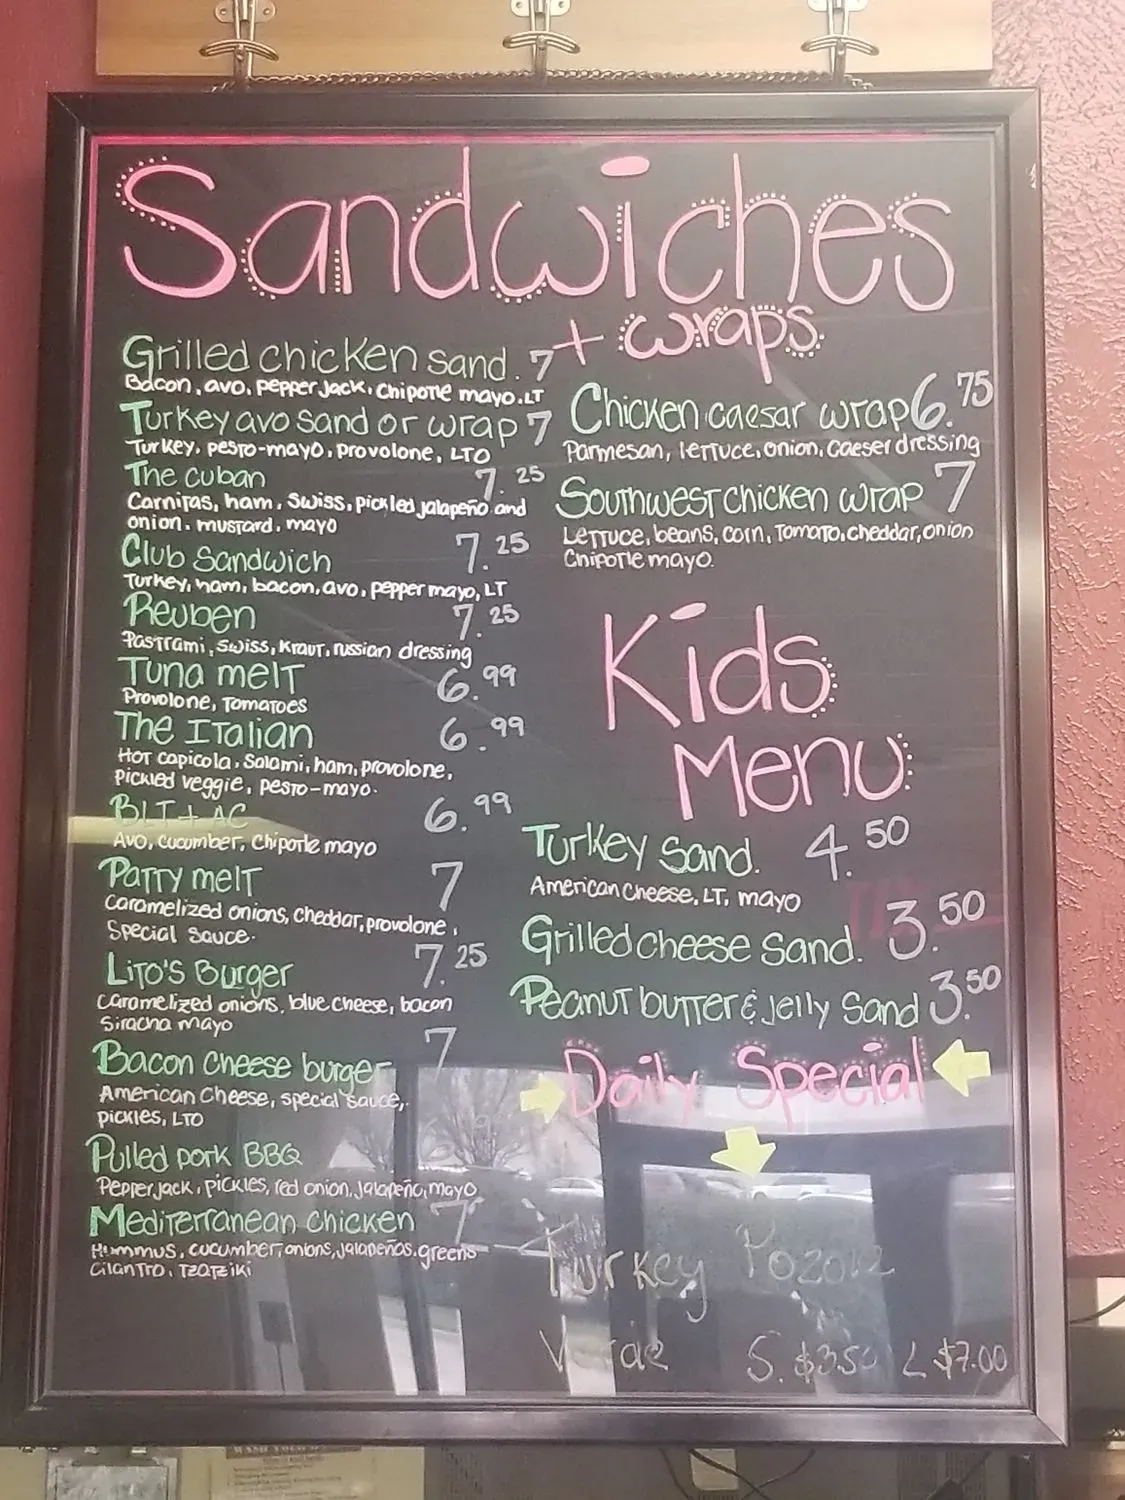 Sandwiches
+ wraps
Grilled chicken sand. 7
Bacon, avo, pepper jack, Chipotle mayo. LT
Turkey avo sand or wrap 7
Turkey, pesto-mayo, provolone, LTO
The cuban 7.25
Carnitas, ham, Swiss, pickled jalapeño and
onion, mustard, mayo
Club Sandwich 7.25
Turkey, ham, bacon, avo, pepper mayo, LT
Reuben 7.25
Pastrami, Swiss, Kraut, russian dressing
Tuna melt 6.99
Provolone, Tomatoes
The Italian 6.99
Hot capicola, Salami, ham, provolone,
pickled veggie, pesto-mayo.
BLT + AC 6.99
Avo, cucumber, Chipotle mayo
Patty melt 7
Caramelized onions, cheddar, provolone,
Special sauce.
Lito's Burger 7.25
Caramelized onions, blue cheese, bacon
Siracha mayo
Bacon cheese burger 7
American Cheese, special sauce,
pickles, LTO
Pulled pork BBQ
Pepper jack, pickles, red onion, jalapeño, mayo
Mediterranean chicken 7
Hummus, cucumber, onions, jalapeños, greens
Cilantro, Tzatziki
Chicken caesar wrap 6.75
Parmesan, lettuce, onion, caeser dressing
Southwest chicken wrap 7
Lettuce, beans, corn, Tomato, cheddar, onion
Chipotle mayo.
Kids
Menu
Turkey Sand. 4.50
American cheese, LT, mayo
Grilled cheese sand. 3.50
Peanut butter & jelly Sand 3.50
Daily Special
Turkey Pozole
Verde S. $3.50 L $7.00